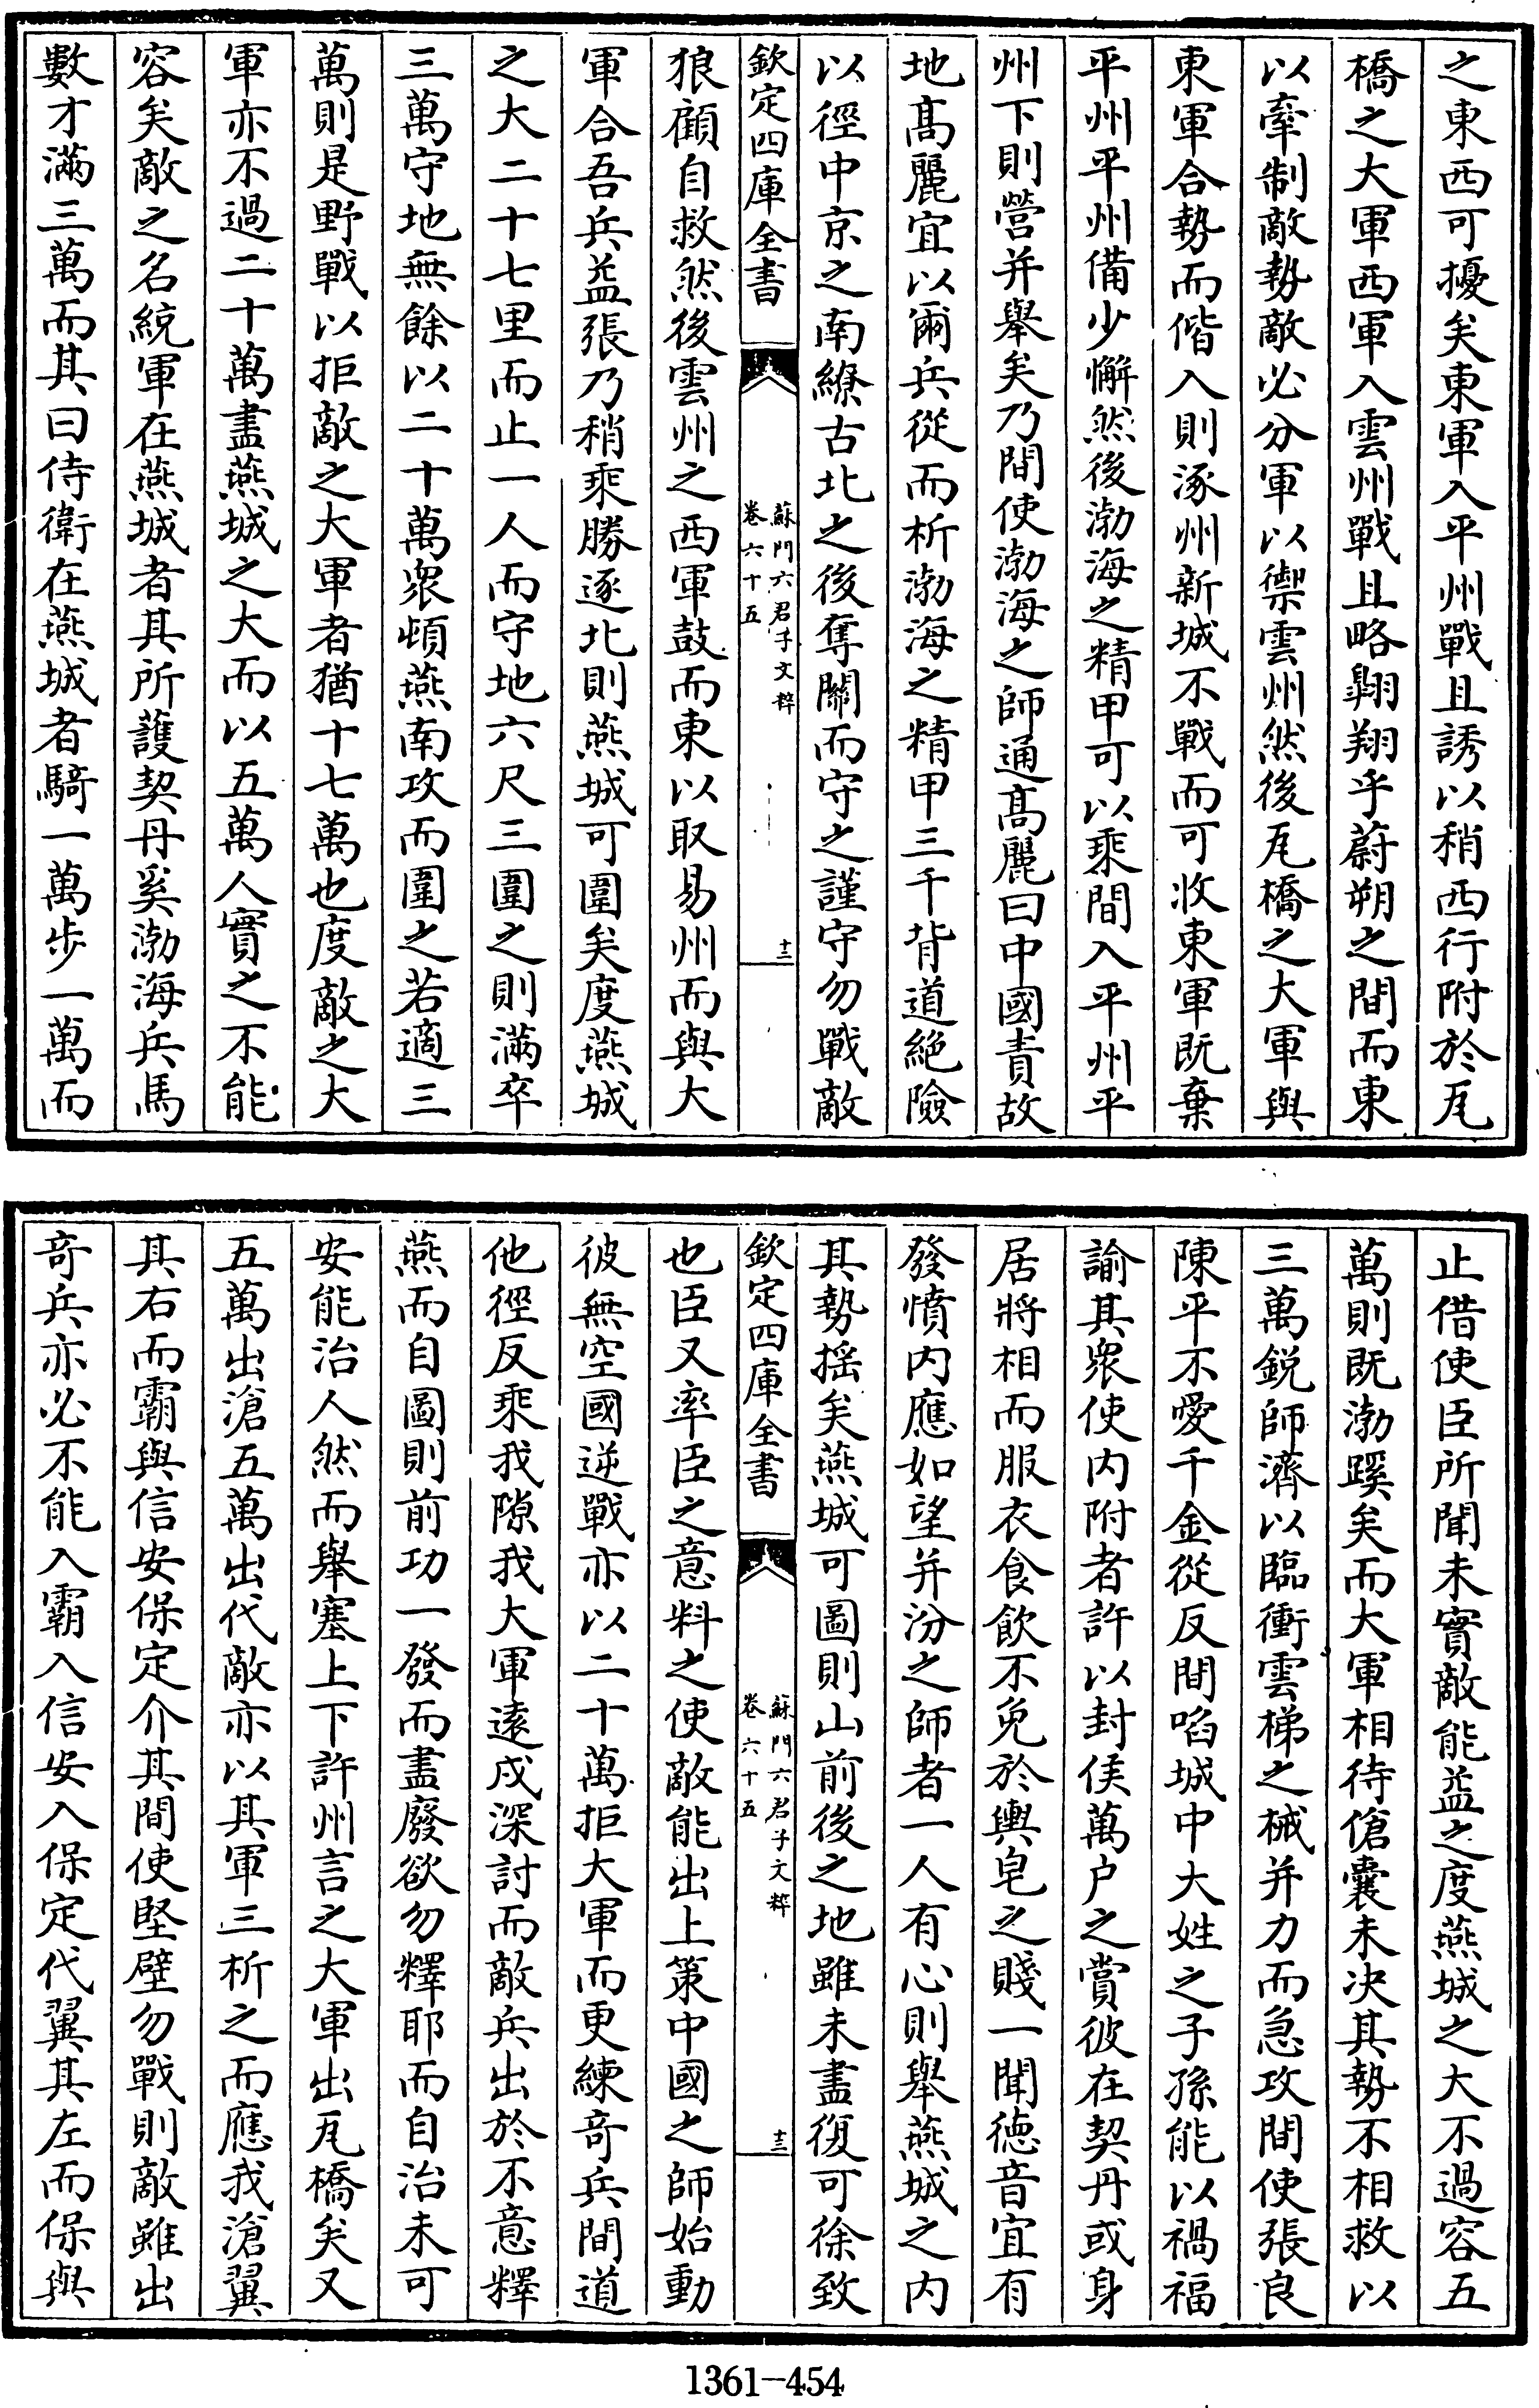 之東西可擾矣東軍入平州戰且誘以稍西行附於瓦
橋之大軍西軍入雲州戰且略翺翔乎蔚朔之間而東
以牽制敵勢敵必分軍以禦雲州然後瓦橋之大軍與
東軍合勢而偕入則涿州新城不戰而可收東軍既棄
平州平州備少懈然後渤海之精甲可以乘間入平州平
州下則營并舉矣乃間使渤海之師通髙麗曰中國責故
地髙麗宜以爾兵從而析渤海之精甲三千背道絶險
以徑中京之南繚古北之後奪關而守之謹守勿戰敵
欽定四庫全書
蘇門六君子文粹
卷六十五
十三
狼顧自救然後雲州之西軍鼓而東以取易州而與大
軍合吾兵益張乃稍乘勝逐北則燕城可圍矣度燕城
之大二十七里而止一人而守地六尺三圍之則滿卒
三萬守地無餘以二十萬衆頓燕南攻而圍之若適三
萬則是野戰以拒敵之大軍者猶十七萬也度敵之大
軍亦不過二十萬盡燕城之大而以五萬人實之不能
容矣敵之名統軍在燕城者其所䕶契丹奚渤海兵馬
數才滿三萬而其曰侍衛在燕城者騎一萬步一萬而
止借使臣所聞未實敵能益之度燕城之大不過容五
萬則既渤蹊矣而大軍相待傖囊未决其勢不相救以
三萬鋭師濟以臨衝雲梯之械并力而急攻間使張良
陳平不愛千金從反間啗城中大姓之子孫能以禍福
諭其衆使内附者許以封侯萬户之賞彼在契丹或身
居將相而服衣食飲不免於輿皂之賤一聞德音宜有
發憤内應如望并汾之師者一人有心則舉燕城之内
其勢揺矣燕城可圖則山前後之地雖未盡復可徐致
欽定四庫全書
蘇門六君子文粹
卷六十五
十三
也臣又率臣之意料之使敵能出上策中國之師始動
彼無空國逆戰亦以二十萬拒大軍而更練竒兵間道
他徑反乘我隙我大軍遠戍深討而敵兵出於不意釋
燕而自圖則前功一發而盡廢欲勿釋耶而自治未可
安能治人然而舉塞上下許州言之大軍出瓦橋矣又
五萬出滄五萬出代敵亦以其軍三析之而應我滄翼
其右而霸與信安保定介其間使堅壁勿戰則敵雖出
竒兵亦必不能入霸入信安入保定代翼其左而保與
1361-454